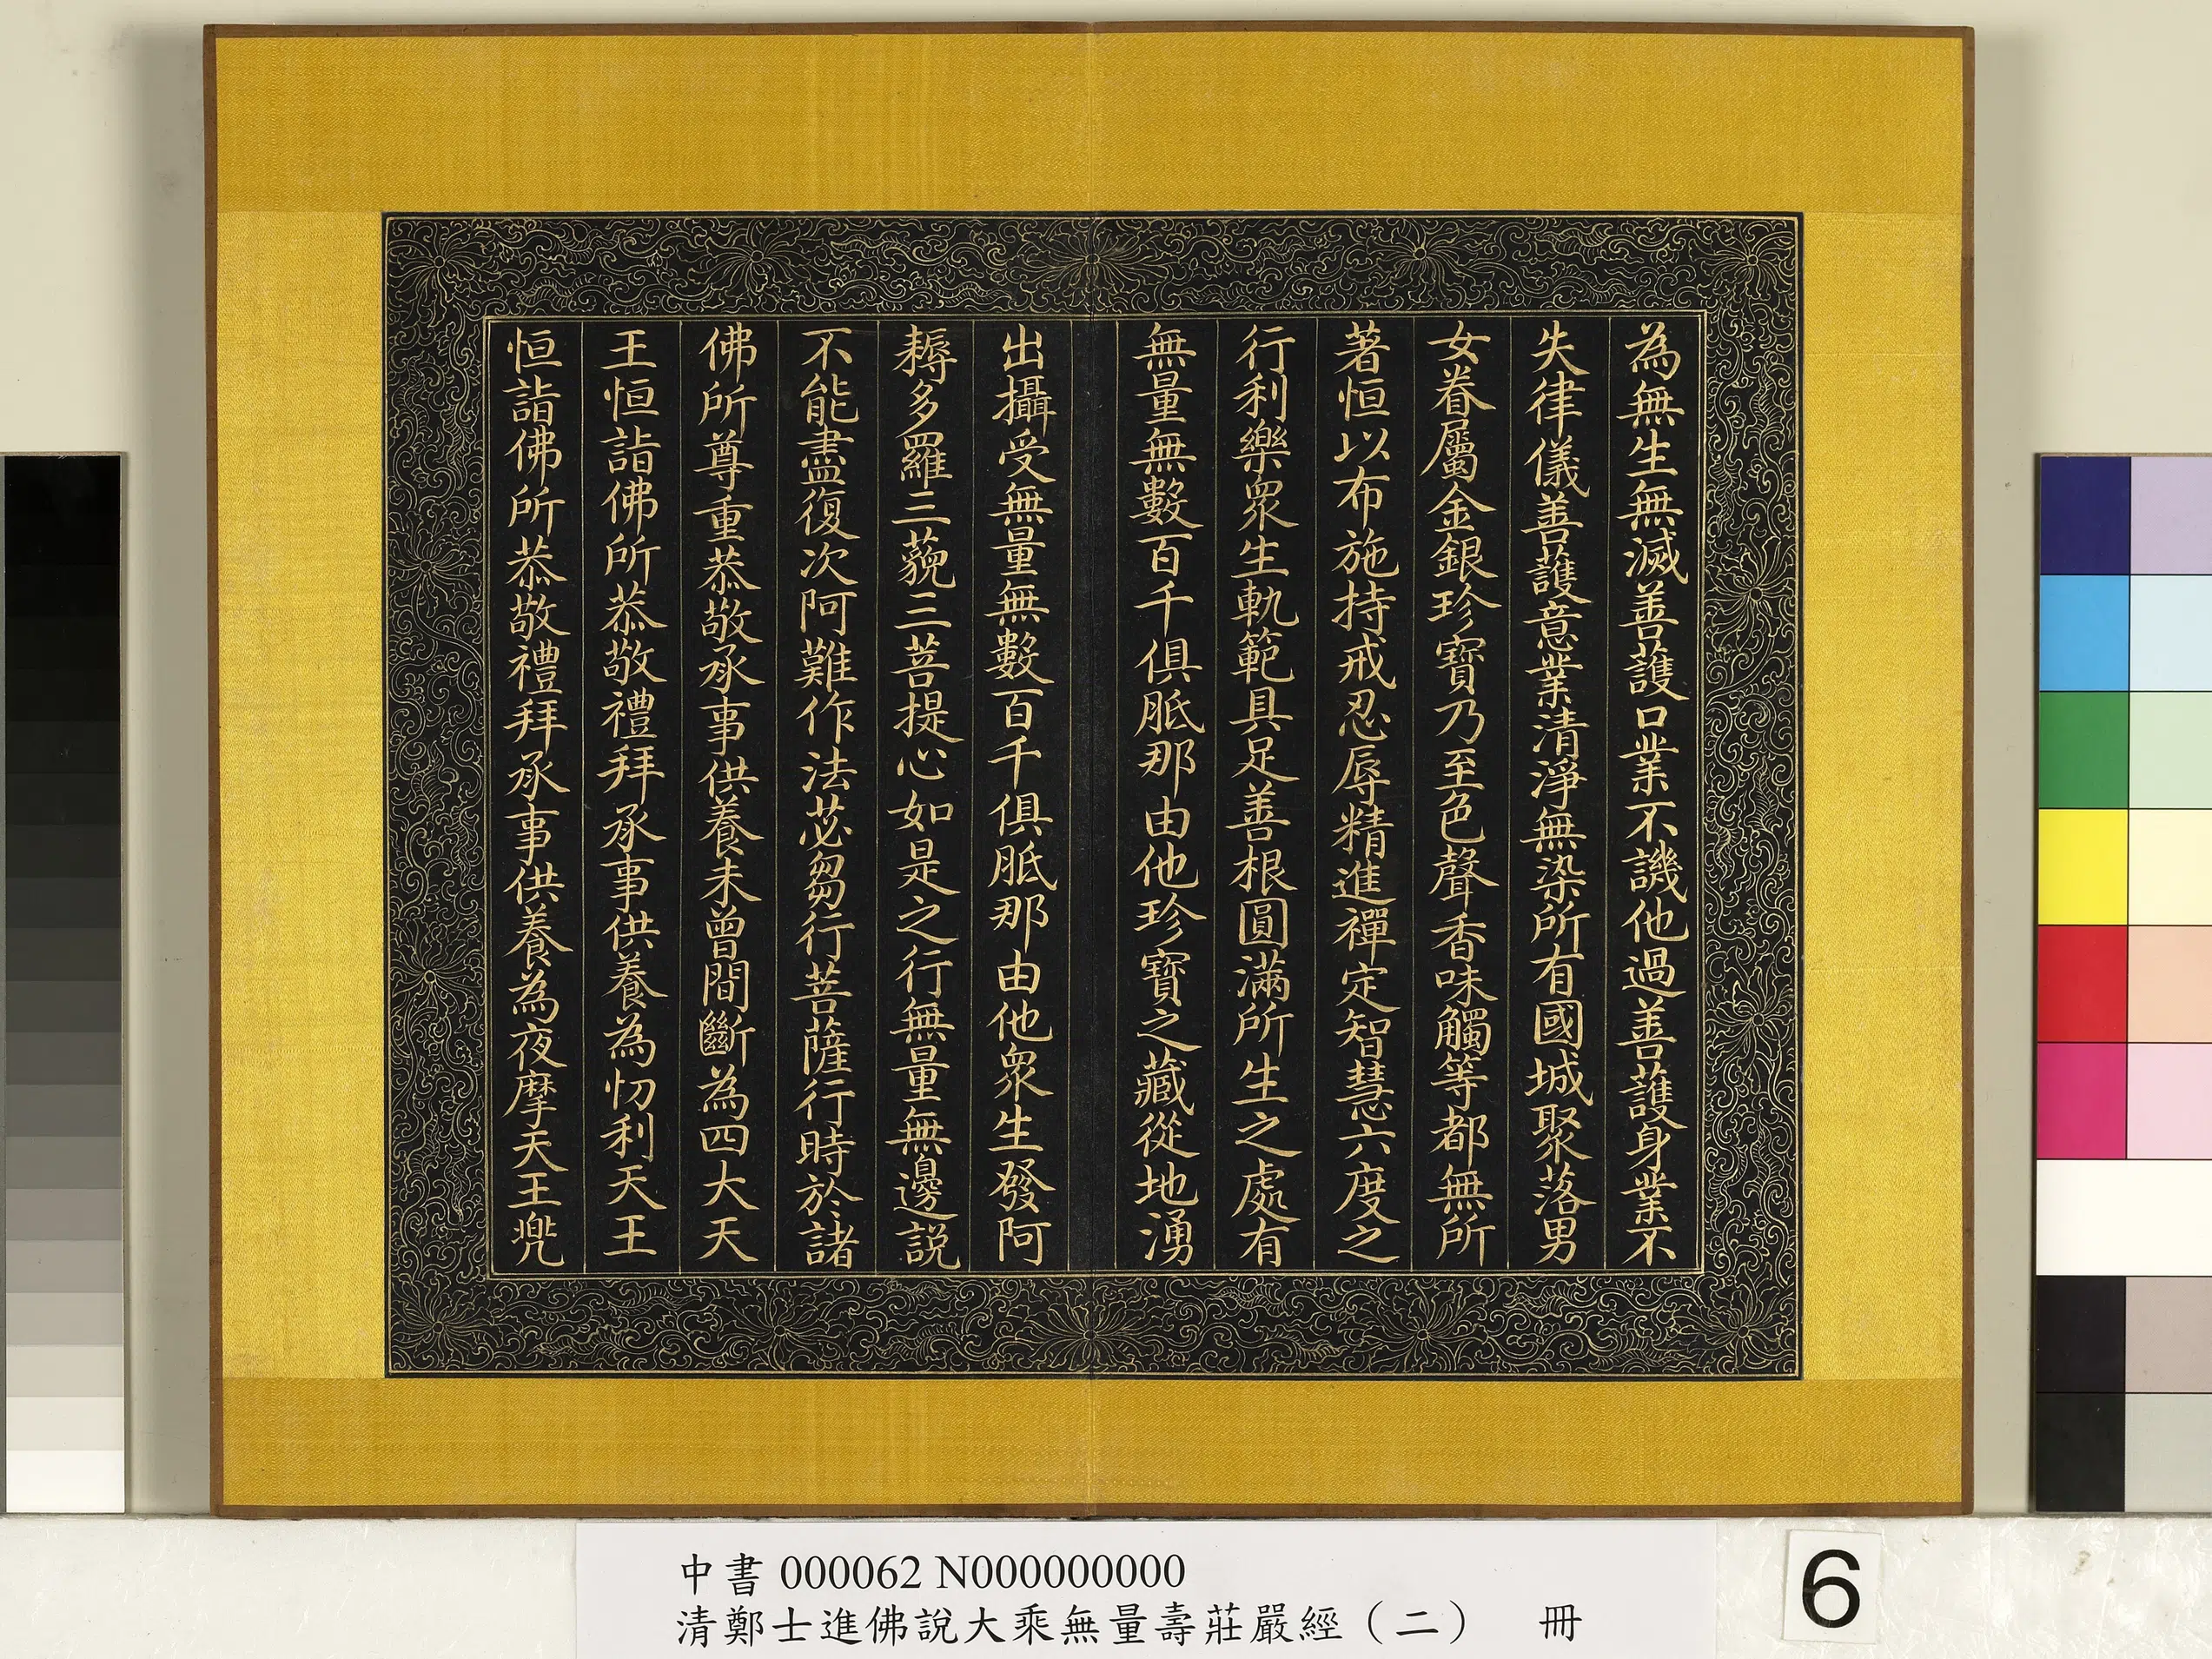 為無生無滅善護口業不譏他過善護身業不
失律儀善護意業清淨無染所有國城聚落男
女眷屬金銀珍寶乃至色聲香味觸等都無所
著恒以布施持戒忍辱精進禪定智慧六度之
行利樂眾生軌範具足善根圓滿所生之處有
無量無數百千俱胝那由他珍寶之藏從地湧
出攝受無量無數百千俱胝那由他眾生發阿
耨多羅三藐三菩提心如是之行無量無邊説
不能盡復次阿難作法苾芻行菩薩行時於諸
佛所尊重恭敬承事供養未曾間斷為四大天
王恒詣佛所恭敬禮拜承事供養為忉利天王
恒詣佛所恭敬禮拜承事供養為夜摩天王兠
中書 000062 N000000000
清鄭士進佛說大乘無量壽莊嚴經（二） 冊
6